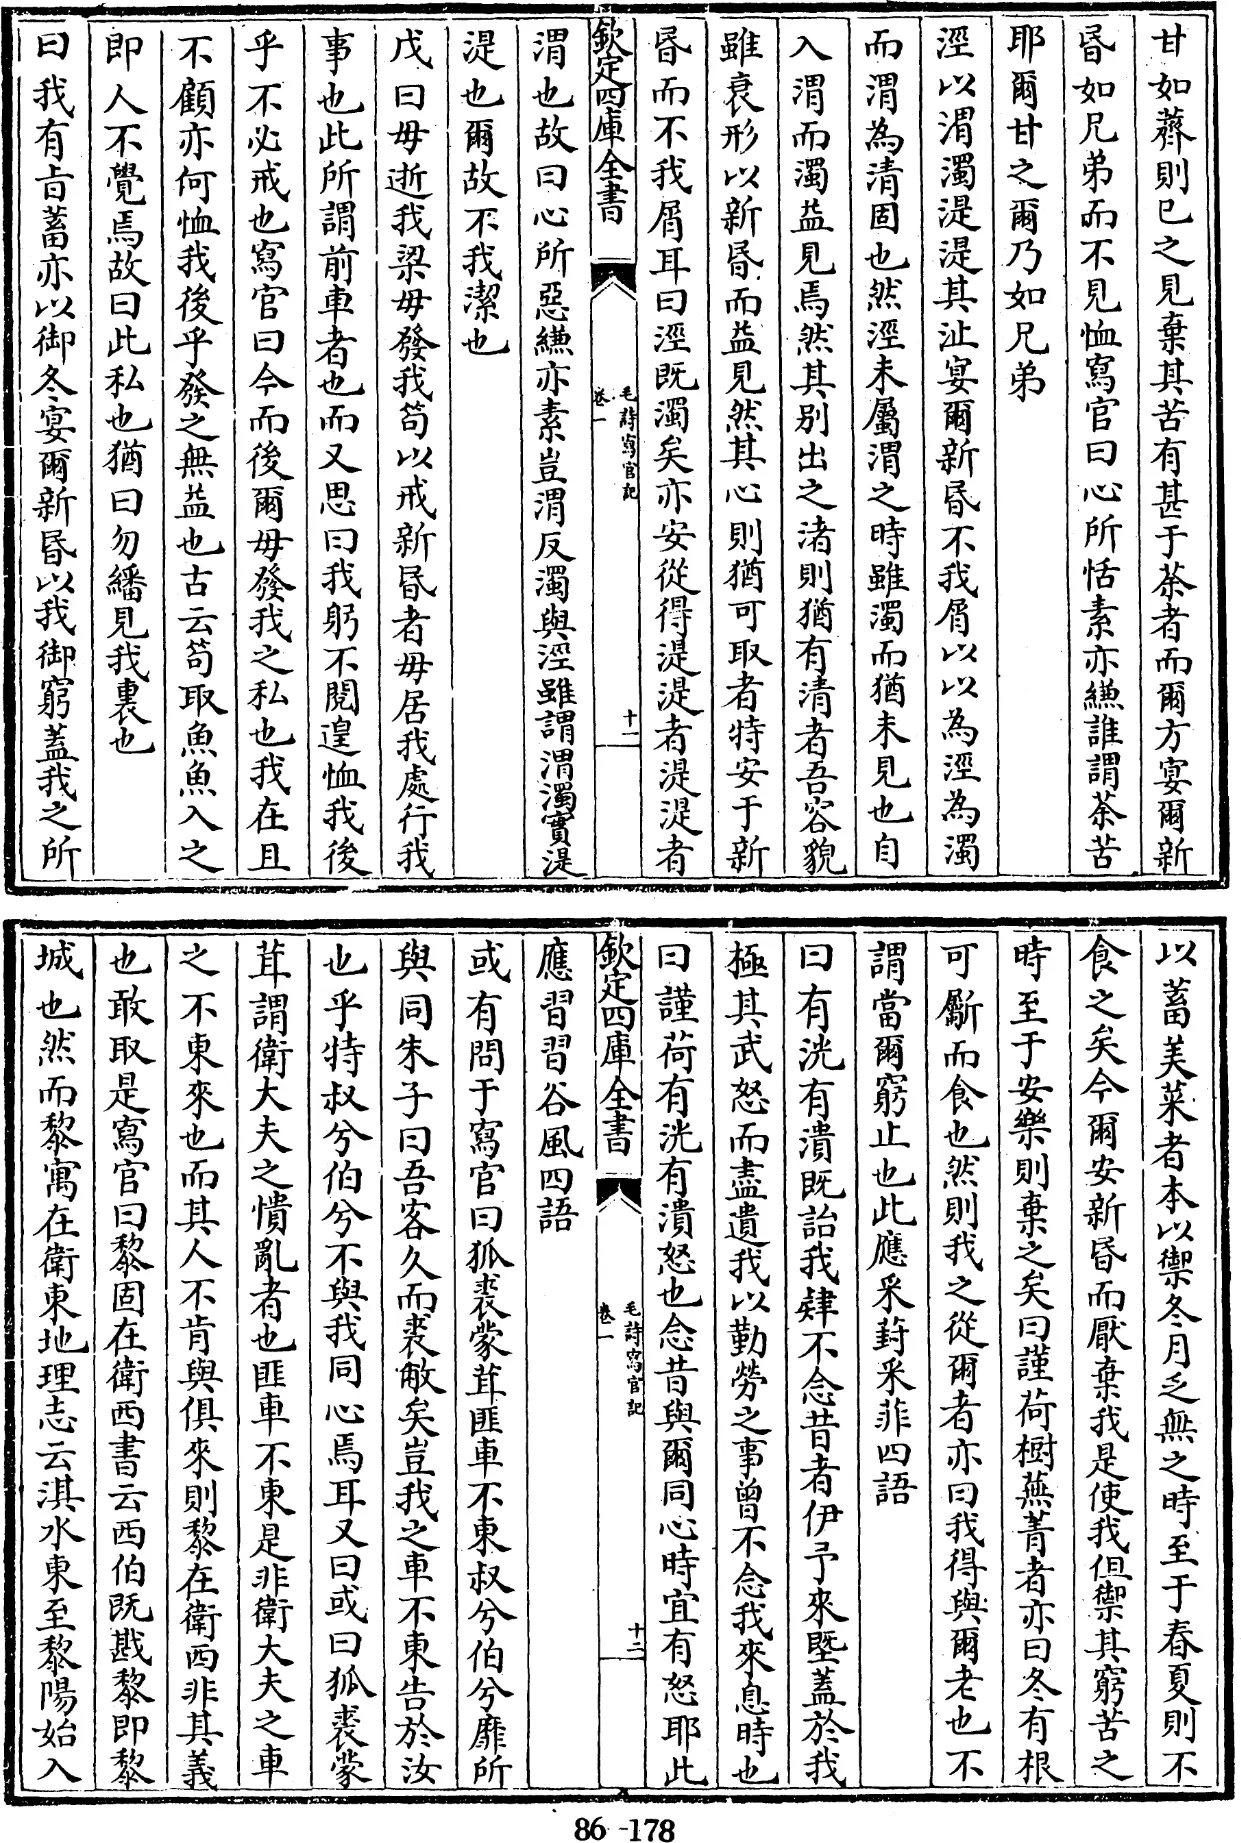 甘如薺則已之見棄其苦有甚于荼者而爾方宴爾新
昬如兄弟而不見恤寫官曰心所恬素亦縑誰謂荼苦
耶爾甘之爾乃如兄弟
涇以渭濁湜湜其沚宴爾新昬不我屑以以為涇為濁
而渭為清固也然涇未屬渭之時雖濁而猶未見也自
入渭而濁益見焉然其别出之渚則猶有清者吾容貌
雖衰形以新昬而益見然其心則猶可取者特安于新
昬而不我屑耳曰涇既濁矣亦安從得湜湜者湜湜者
欽定四庫全書
毛詩寫官記
卷一
十一
渭也故曰心所惡縑亦素豈渭反濁與涇雖謂渭濁實湜
湜也爾故不我潔也
戊曰毋逝我梁毋發我笱以戒新昬者毋居我處行我
事也此所謂前車者也而又思曰我躬不閱遑恤我後
乎不必戒也寫官曰今而後爾毋發我之私也我在且
不顧亦何恤我後乎發之無益也古云笱取魚魚入之
即人不覺焉故曰此私也猶曰勿繙見我裏也
曰我有㫖蓄亦以御冬宴爾新昬以我御窮蓋我之所
以蓄美菜者本以禦冬月乏無之時至于春夏則不
食之矣今爾安新昬而厭棄我是使我但禦其窮苦之
時至于安樂則棄之矣曰謹荷樹蕪菁者亦曰冬有根
可斸而食也然則我之從爾者亦曰我得與爾老也不
謂當爾窮止也此應采葑采菲四語
曰有洸有潰既詒我肄不念昔者伊予來塈蓋於我
極其武怒而盡遺我以勤勞之事曾不念我來息時也
曰謹荷有洸有潰怒也念昔與爾同心時宜有怒耶此
欽定四庫全書
毛詩寫官記
卷一
十二
應習習谷風四語
或有問于寫官曰狐裘蒙茸匪車不東叔兮伯兮靡所
與同朱子曰吾客久而裘敝矣豈我之車不東告於汝
也乎特叔兮伯兮不與我同心焉耳又曰或曰狐裘蒙
茸謂衛大夫之憒亂者也匪車不東是非衛大夫之車
之不東來也而其人不肯與俱來則黎在衛西非其義
也敢取是寫官曰黎固在衛西書云西伯既戡黎即黎
城也然而黎寓在衛東地理志云淇水東至黎陽始入
86-178